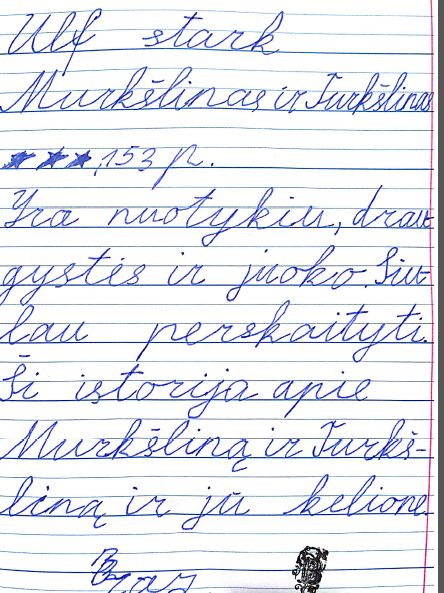 Ulf stark
Murkšlinas ir Turkšlinas
★★★, 153 p.
Yra nuotykiu, drau-
gystės ir juoko. Siu-
lau perskaityti.
Ši istorija apie
Murkšliną ir Turkš-
liną ir jū kelionę.